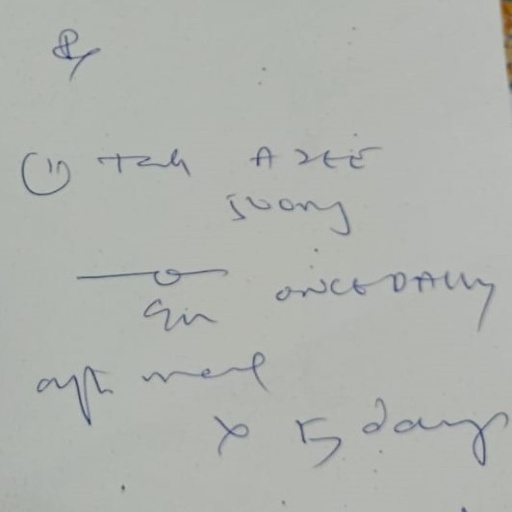 Rx
① Tab AZEE
500mg
ONCE DAILY
after meal
x 5 days